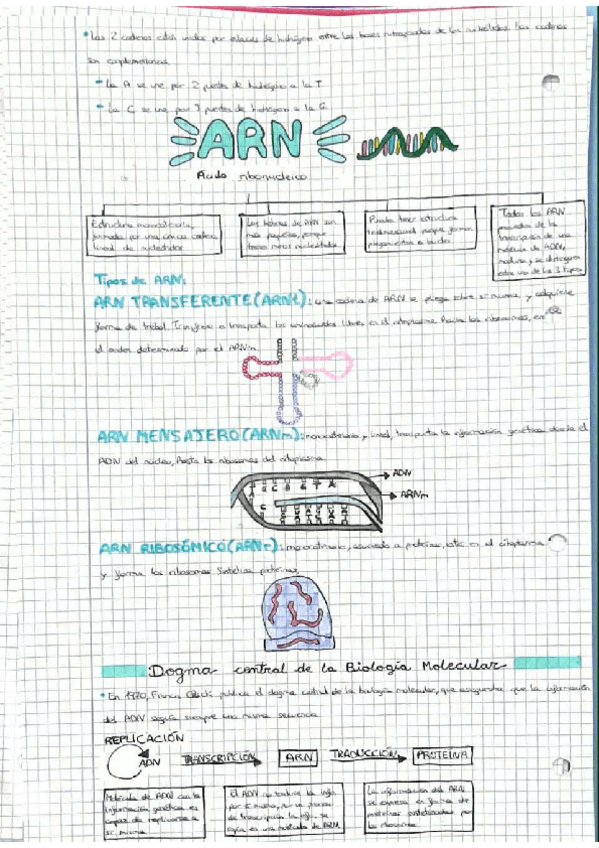 • Las 2 cadenas están unidas por enlaces de hidrógeno entre las bases nitrogenadas de los nucleótidos. Las cadenas
son complementarias.
- La A se une por 2 puentes de hidrógeno a la T
- La C se une por 3 puentes de hidrógeno a la G
ARN
Ácido ribonucleico
Estructura monocatenaria,
formada por una única cadena
lineal de nucleótidos
Las hebras de ARN son
más pequeñas, porque
tienen menos nucleótidos
Puede tener estructura
tridimensional porque forma
plegamientos o bucles
Todos los ARN
proceden de la
transcripción de una
molécula de ADN,
y se distinguen
3 tipos
Tipos de ARN:
ARN TRANSFERENTE (ARNt): una cadena de ARN se pliega sobre sí misma y adquiere
forma de trébol. transporta los aminoácidos libres en el citoplasma hasta los ribosomas, en
el orden determinado por el ARNm
ARN MENSAJERO (ARNm): monocatenario y lineal, transporta la información genética desde el
ADN del núcleo, hasta los ribosomas del citoplasma.
ADN
ARNm
ARN RIBOSÓMICO (ARNr): monocatenario, asociado a proteínas, está en el citoplasma
y forma los ribosomas. Sintetiza proteínas.
Dogma central de la Biología Molecular
• En 1970, Francis Crick publica el dogma central de la biología molecular, que que la información
del ADN seguía siempre una misma secuencia
REPLICACIÓN
ADN TRANSCRIPCIÓN ARN TRADUCCIÓN PROTEÍNA
Molécula de ADN con la
información genética es
capaz de replicarse a
sí misma
El ADN no traduce la info
por sí mismo,
de transcripción la info. se
copia en una molécula de ARN
La información del ARN
se expresa en forma de
proteínas sintetizadas por